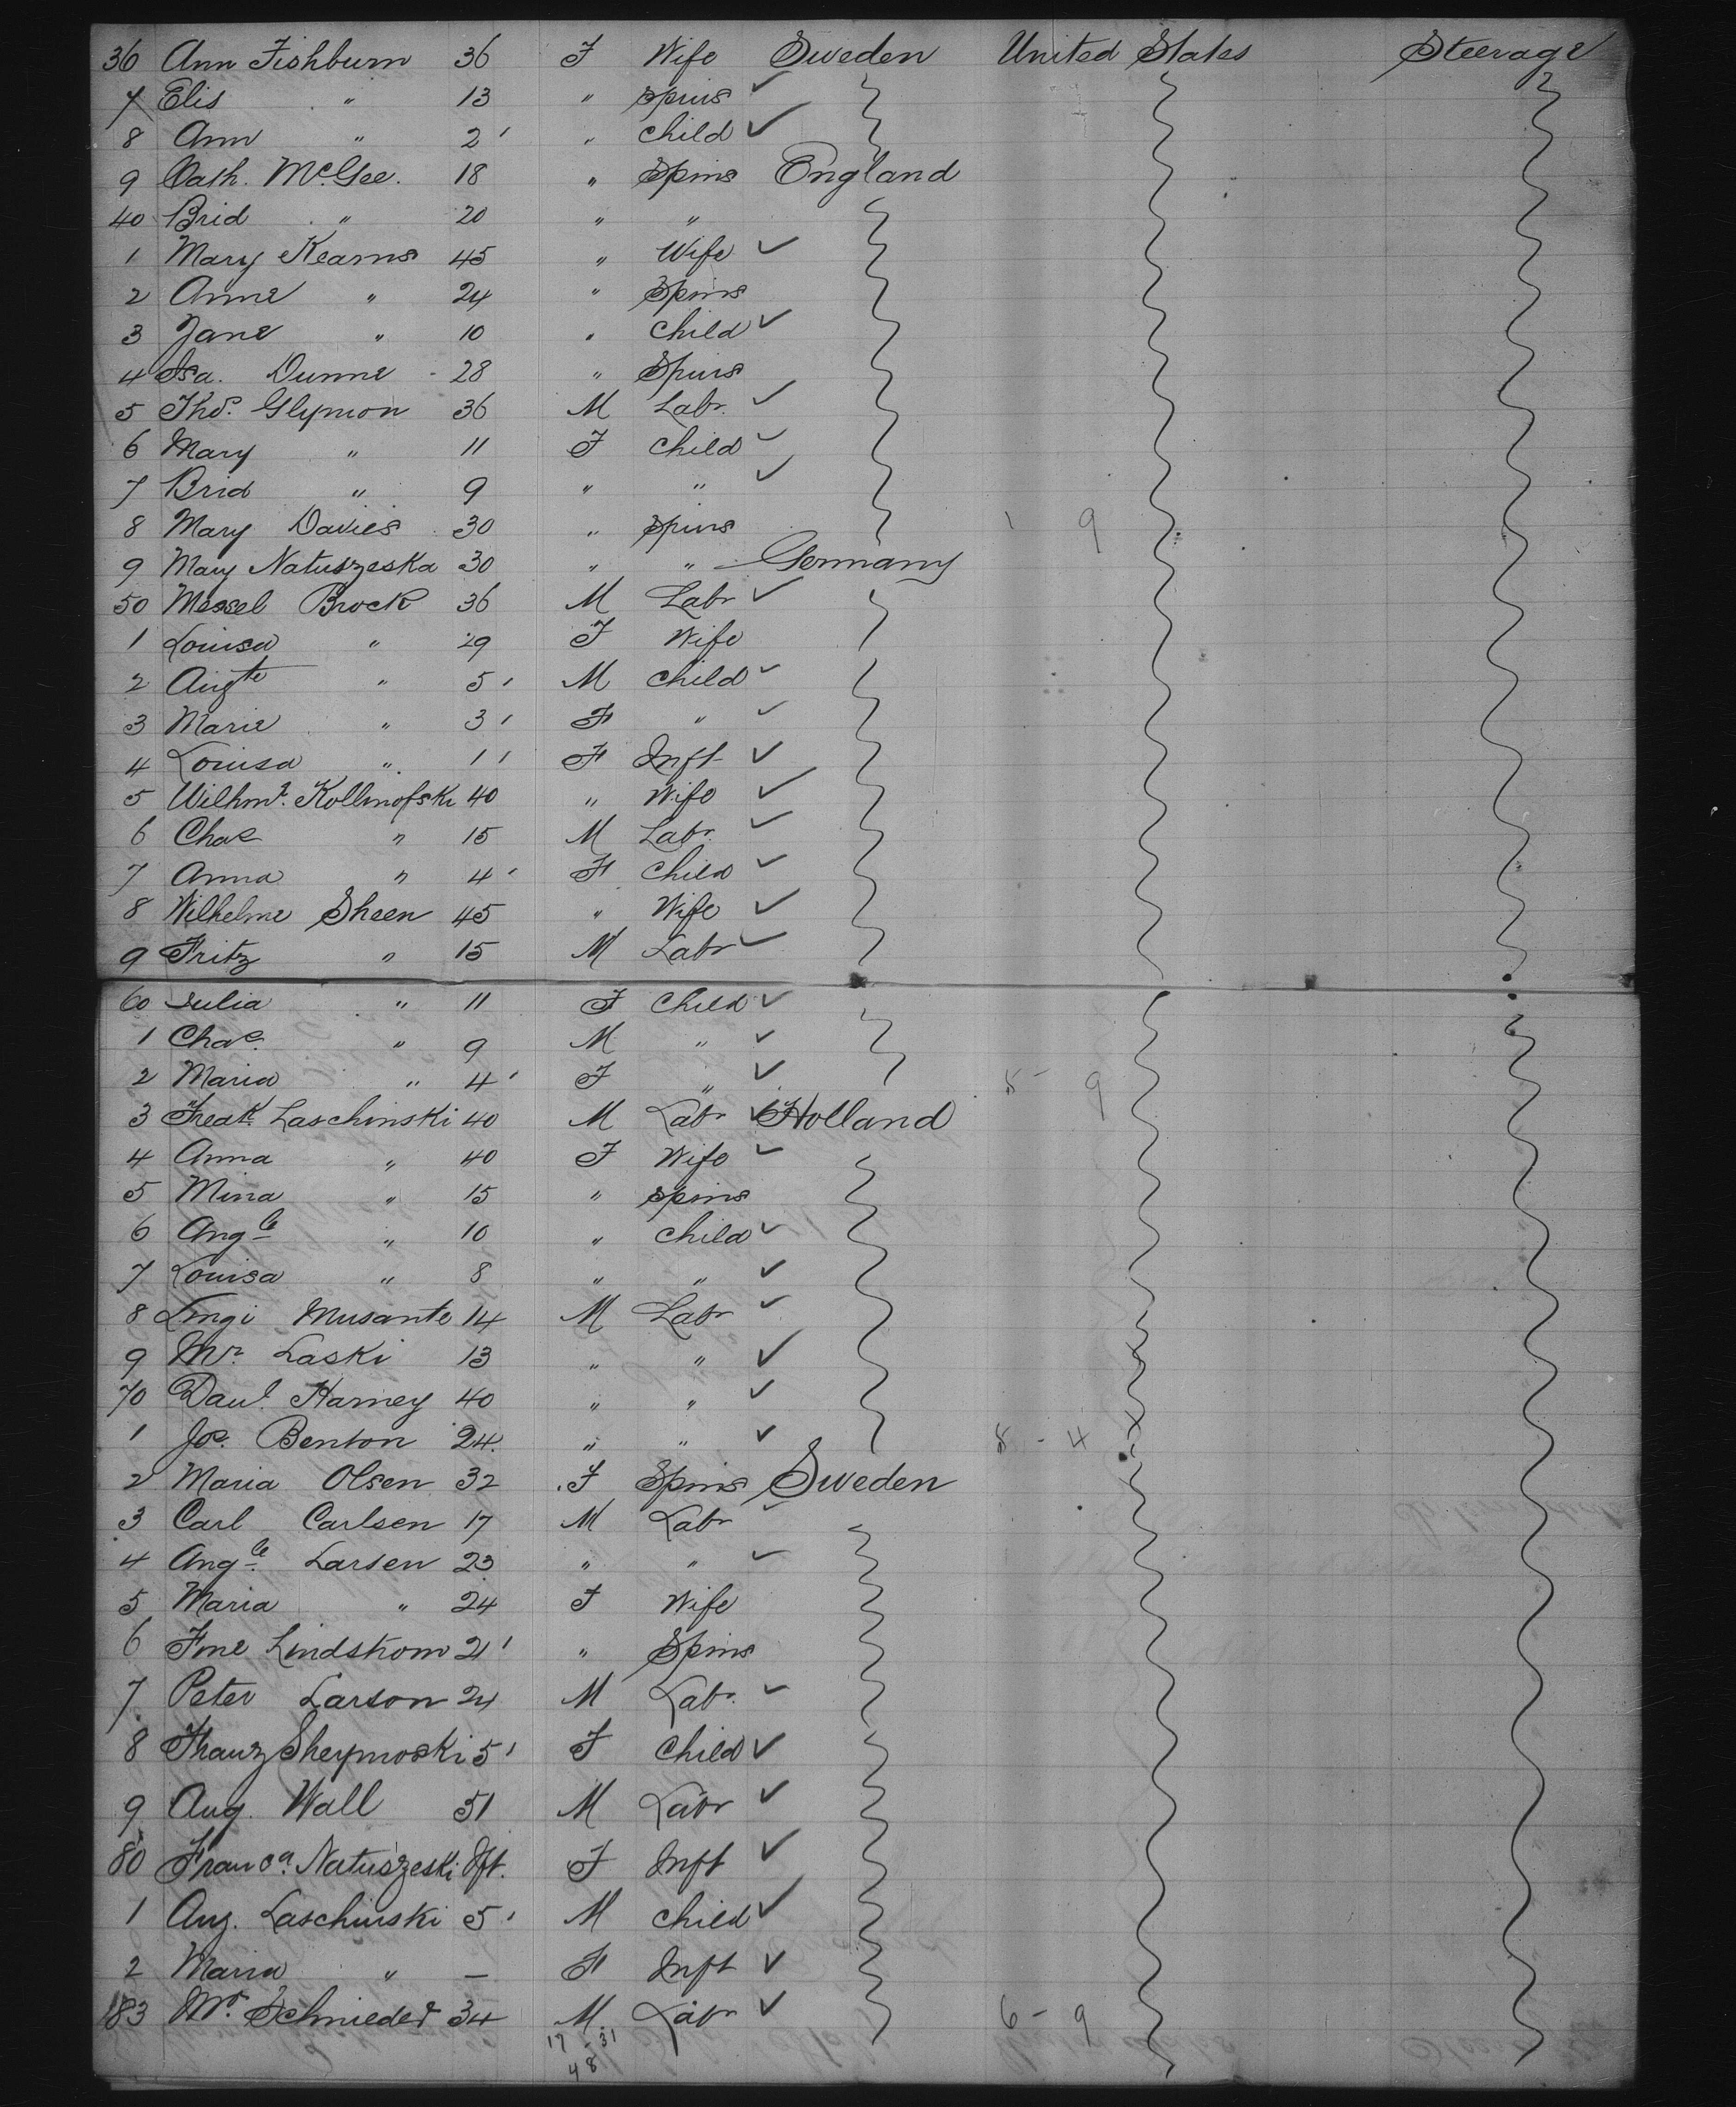 36 Ann Fishburn 36 F Wife Sweden United States Steerage
7 Elis " 13 " Spins
8 Ann " 2 " Child
9 Cath. McGee. 18 " Spins England
40 Brid " 20 " "
1 Mary Kearns 45 " Wife
2 Anne " 24 " Spins
3 Jane " 10 " Child
4 Isa. Dunne 28 " Spins
5 Thos. Glynion 36 M Labr.
6 Mary " 11 F Child
7 Brid " 9 " "
8 Mary Davies 30 " Spins 1 9
9 Mary Natuszeska 30 " " Germany
50 Messel Brock 36 M Labr
1 Louisa " 29 F Wife
2 Augte " 5 M Child
3 Marie " 3 F "
4 Louisa " 1 F Inft
5 Wilhme. Kollmofski 40 " Wife
6 Chas " 15 M Labr.
7 Anna " 4 F Child
8 Wilhelme Sheen 45 " Wife
9 Fritz " 15 M Labr
60 Julia " 11 F Child
1 Chas. " 9 M "
2 Maria " 4 F " 8 - 9
3 Freak Laschinski 40 M Labr Holland
4 Anna " 40 F Wife
5 Mina " 15 " Spins
6 Augte " 10 " Child
7 Louisa " 8 " "
8 Lingi Musante 14 M Labr
9 Mr. Laski 13 " "
70 Danl. Harney 40 " "
1 Jos. Benton 24. " " 8 - 4
2 Maria Olsen 32 F Spins Sweden
3 Carl Carlsen 17 M Labr
4 Augte Larsen 23 " "
5 Maria " 24 F Wife
6 Fine Lindstrom 21 " Spins
7 Peter Larson 24 M Labr.
8 Franz Sheymoski 5 F Child
9 Aug. Wall 51 M Labr
80 Franca. Natuszeski Ift. F Inft
1 Aug. Laschinski 5 M Child
2 Maria " — F Inft
183 Mr. Schnieder 34 M. Labr 6 - 9
17 - 31
48